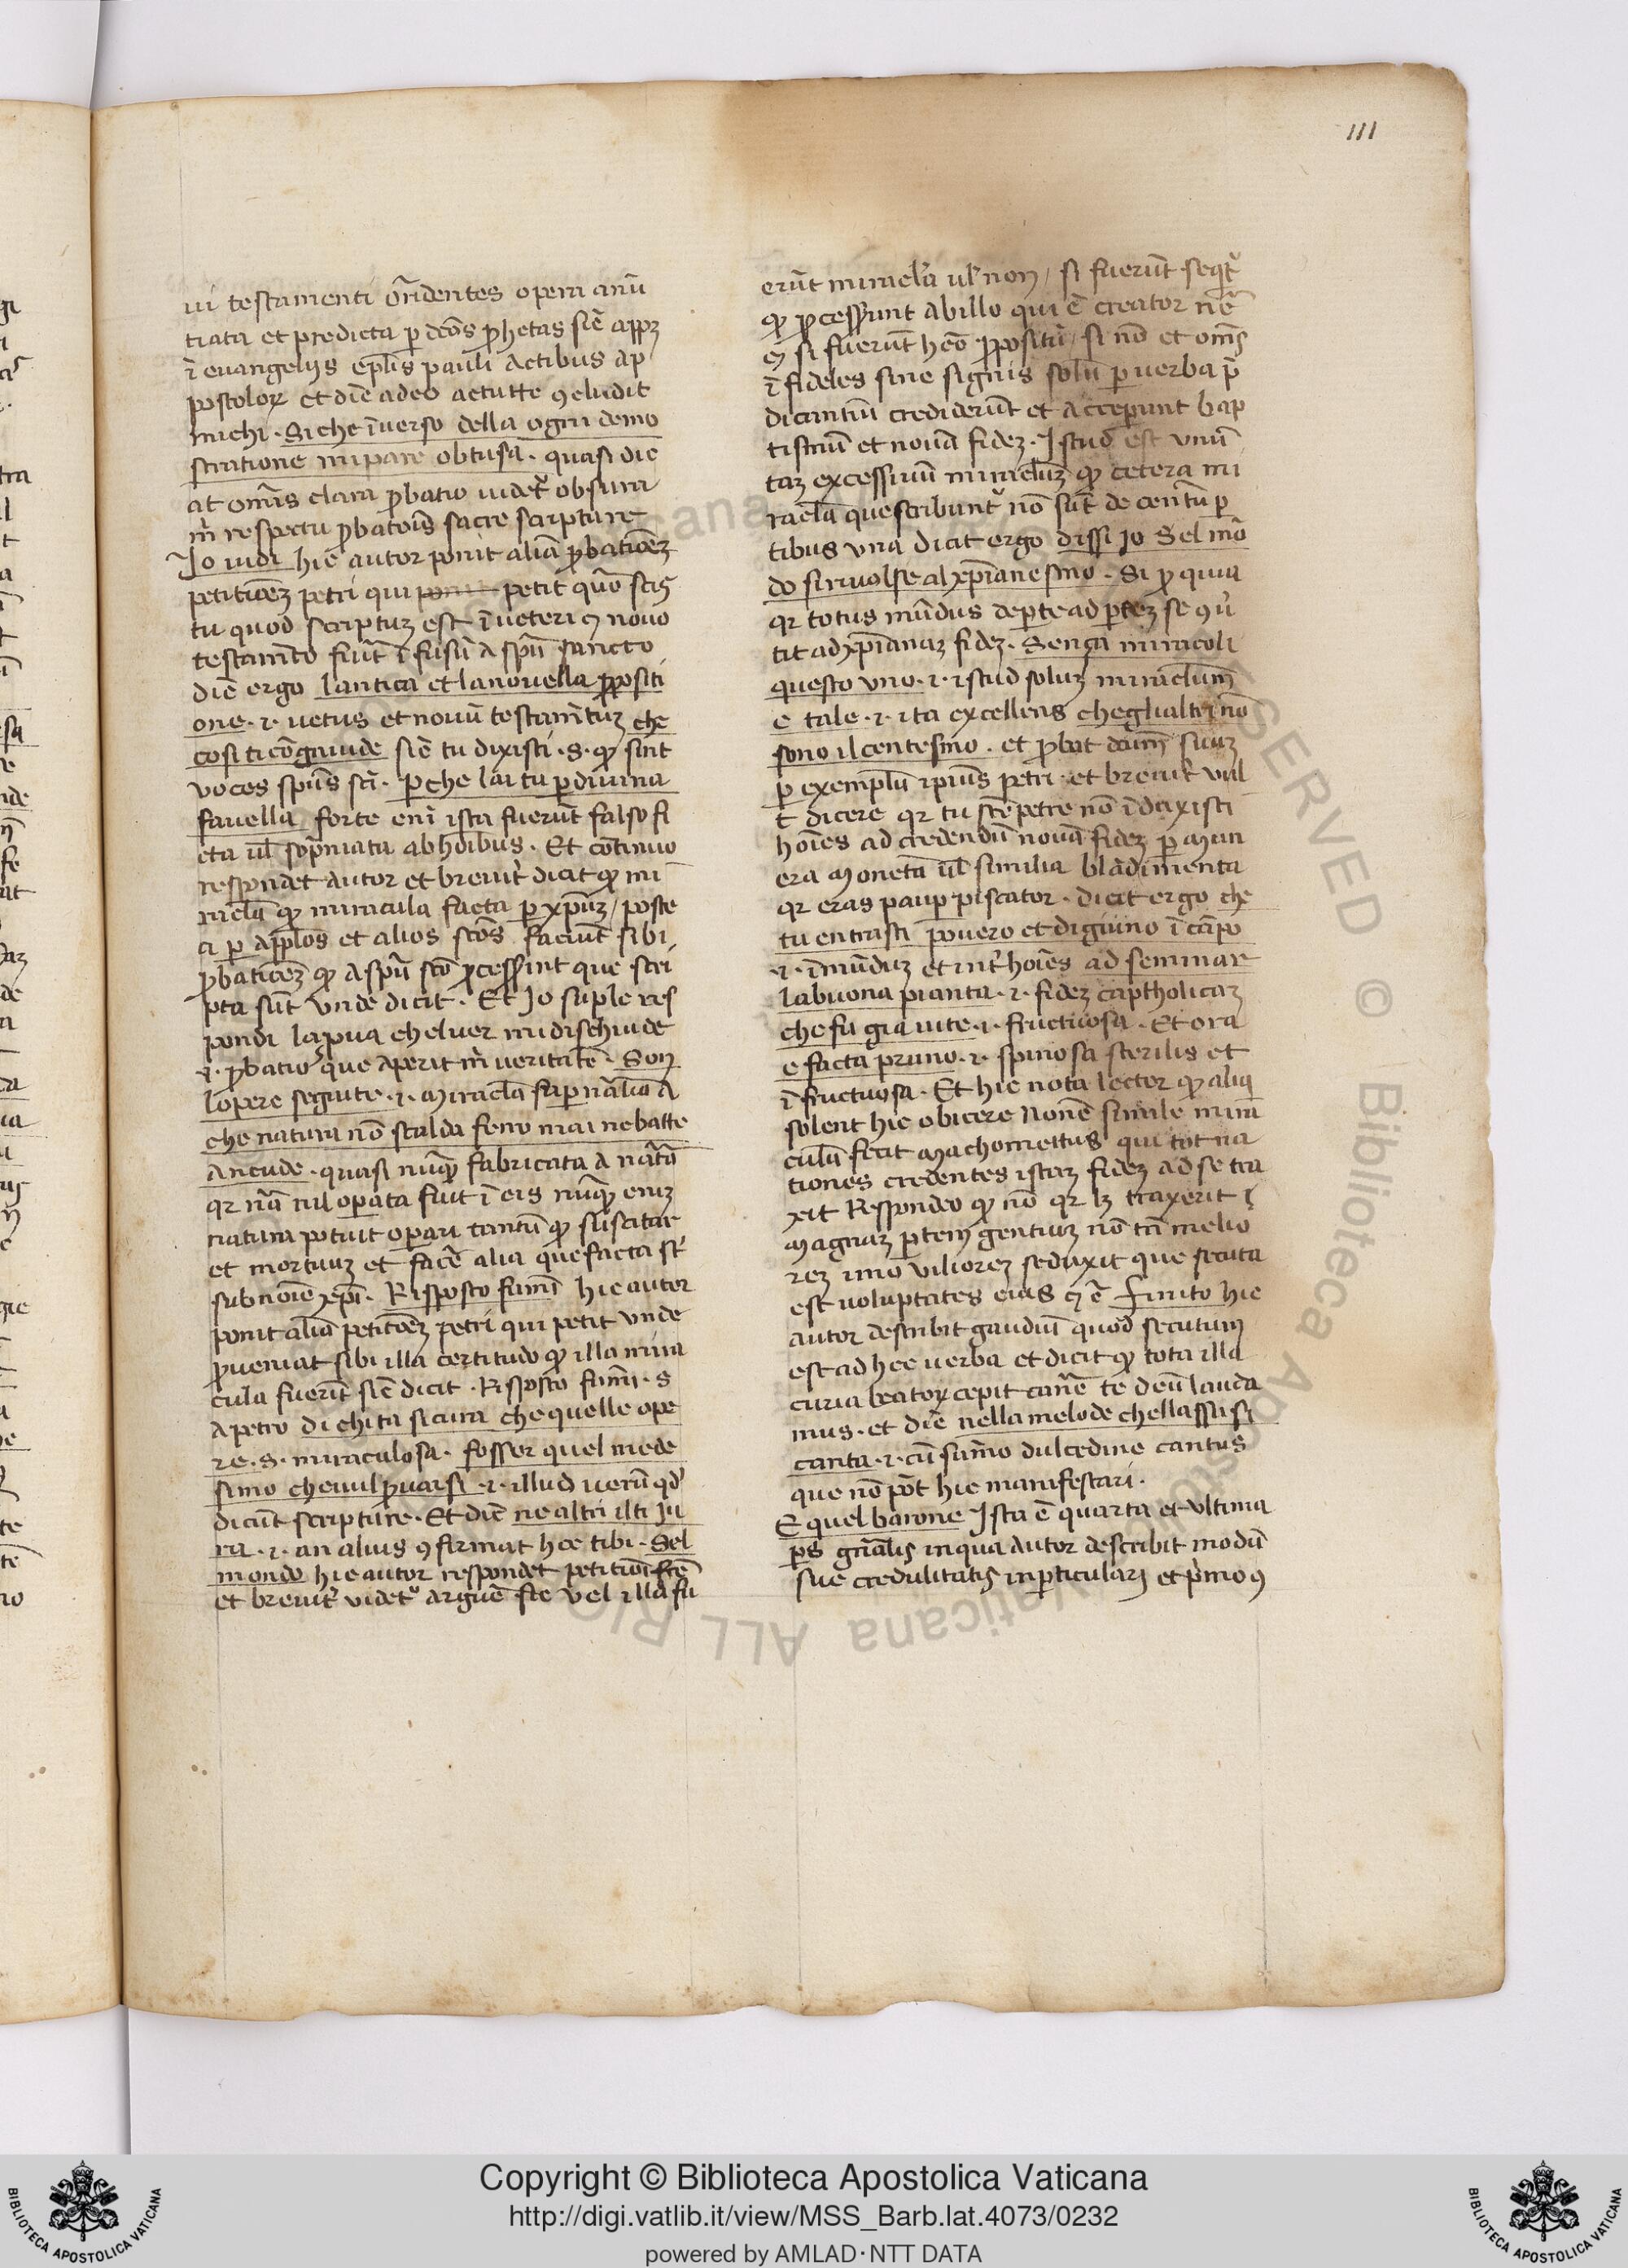 111
ui testamenti on̄dentes opera anū
tiata et predicta p dcōs p̱hetas sic̄ app3
ī euangelijs ep̄lis pauli Actibus Ap
postolor̄ et dic̄ adeo acutte 9cludit
michi · Si che īuerso della ogni demo
stratione mi pare obtusa · quasi dic
at om̄is clara p̱batio uidet᷑ obscura
m̄ respectu p̱batōis sacre scripture
Jo udi hic autor ponit aliā p̱baticōe3
peticōe3 petri qui petit quō scis
tu quod scriptu3 est ī ueteri 7 nouo
testam̄to fuit ī fusū A spū sancto
dic̄ ergo lantica et la nouella p̱positi
one · i · uetus et nouū testam̄tu3 che
cosi ti cōgiude sic̄ tu dixisti · s · q̱ sint
uoces spūs sc̄i · p che lai tu p diuina
fauella forte eni᷑ ista fuerūt falso fi
cta ul̄ sop̄niata ab hōibus · Et cōtinuo
respondet autor et breuit᷑ dicit q̱ mi
racl̄a q̱ miracula facta p xp̄u3 / poste
a p app̄los et alios scōs faciūt sibi
p̱baticōe3 q̱ A spū scō p̱cesserint que scri
pta sūt vnde dicit · Et Jo suple res
pondi la p̱ua chel uer mi dischiude
· i · p̱batio que Aperit m̄ ueritatē · Son
lopere seguite · i · Miracl̄a sup nālia A
che natura nō scalda ferro mai ne batte
Ancude · quasi nūq̱ fabricata A nat᷑a
qr nā nil operata fuit ī eis nūq̱ eni3
natura potuit operari tantū q̱ suscitar
et mortuu3 et fac̄e alia que facta st᷑
sub noīe xp̄i · Risposto fumi᷑ hic autor
ponit aliā peticōe3 petri qui petit vnde
p̱ueniat sibi illa certitudo q̱ illa mira
cula fuerūt sic̄ dicit · Risposto fumi᷑ · s
A petro di chi ta sicura che quelle ope
re · s · miraculosa · fosser quel mede
simo che uul p̱uarsi · i · illud uerū qd᷑
dicūt scripture · Et dic̄ ne altri il ti Ju
ra · i · an alius 9firmat hec tibi · Sel
mondo hic autor respondet peticōi
et breuit᷑ videt᷑ arguē sic vel illa fu
erūt miracl̄a ul᷑ non / si fuerūt seqt᷑
q̱ p̱cesserunt Ab illo qui ē creator
si fuerūt heō p̱positū / si nō et om̄s
ī fideles sine signis solū p uerba p̄
dicantiū crediderūt et Acceperunt bap
tismū et nouā fide3 · Istud est vnū
ta3 excessiuū miraclu3 q̱ cetera mi
racl̄a que scribunt᷑ nō sūt de centū p
tibus vna dicit ergo dissi Jo Sel mō
do si riuolse al xp̄ianesmo · Si p̱ quia
qr totus mūdus de pte ad pte3 se 9u᷑
tit ad xp̄iana3 fide3 · Sença miracoli
questo vno · i · istud solu3 miraclum̄
e tale · i · ita excellens che gli altri nō
sono il centesmo · et p̱bat dcm̄ suu3
p exemplū ipius petri · et breuit᷑ vul
t dicere qr tu sc̄e petre nō ī duxisti
hoīes ad credendū nouā fide3 p Mun
era Monetā ul̄ similia blādimenta
qr eras paup piscator · dicit ergo che
tu entrasti pouero et digiuno ī cāpo
· i · ī mūdu3 et int᷑ hoīes ad seminar
la buona pianta · i · fide3 captholica3
che fu gia uite · i · fructuosa · Et ora
e facta pruno · i · spinosa sterilis et
ī fructuosa · Et hic nota lector q̱ aliq
solent hic obicere Nonē simile mira
culū fecit Machomettus qui tot na
tiones credentes ista3 fide3 ad se tra
xit Respondeo q̱ nō qr l3 traxerit ī
Magna3 ptem gentiu3 nō tn̄ melio
re3 imo viliore3 seduxit que secuta
est uoluptates eius 7 ē finito hic
autor describit gaudiū quod secutum
est ad hec uerba et dicit q̱ tota illa
curia beator̄ cepit can̄e te deū lauda
mus · et dic̄ nella melode che lassu si
canta · i · cū sum̄o dulcedine cantus
que nō pōt hic manifestari ·
E quel barone Ista ē quarta et vltima
ps gn̄alis in qua Autor describit modū
sue credulitatis in particulari et p᷑mo 9
Copyright © Biblioteca Apostolica Vaticana
http://digi.vatlib.it/view/MSS_Barb.lat.4073/0232
powered by AMLAD·NTT DATA
BIBLIOTECA APOSTOLICA VATICANA
BIBLIOTECA APOSTOLICA VATICANA